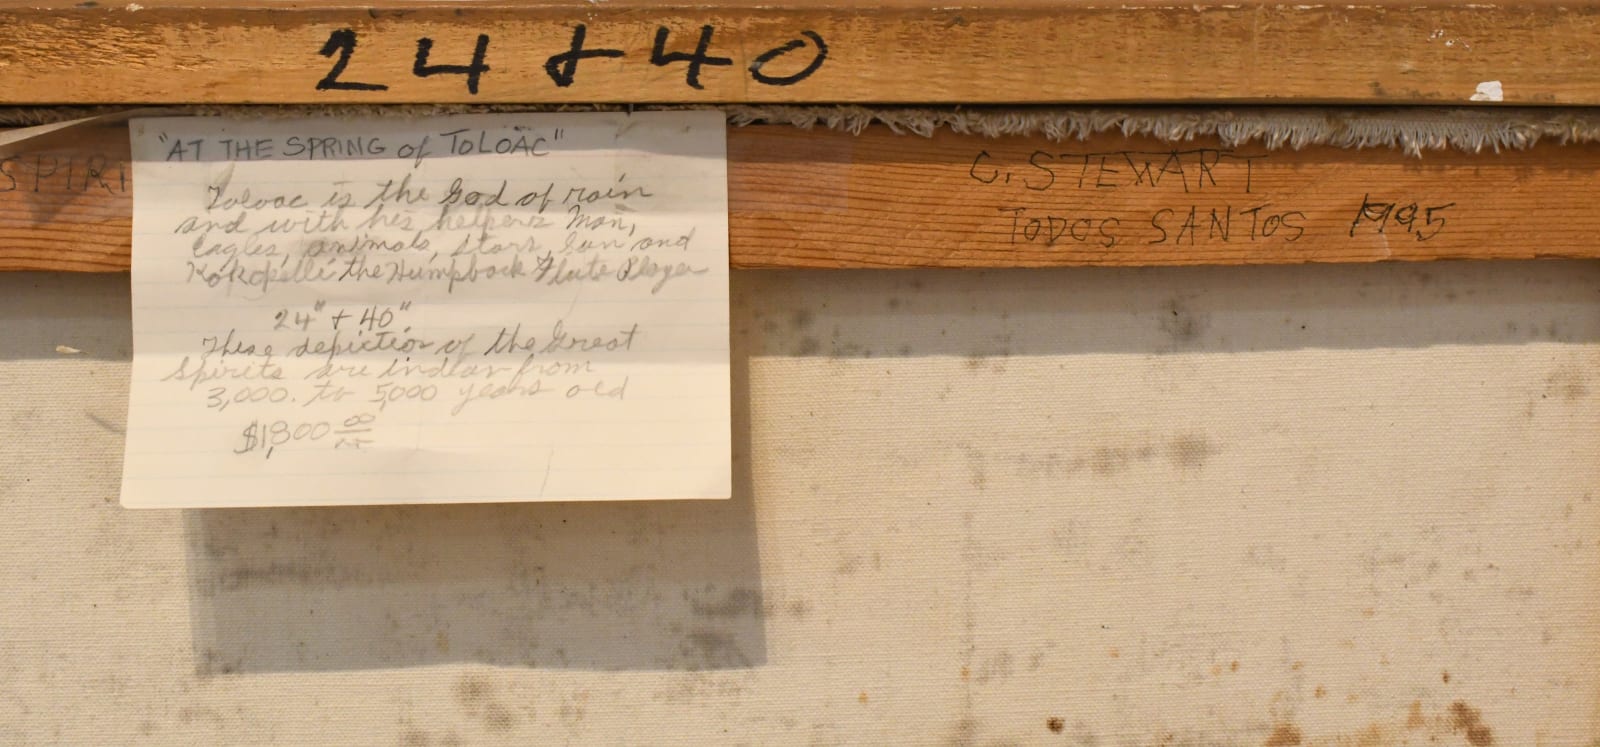 24 + 40
"AT THE SPRING of TOLOAC"
Toloac is the God of rain
and with his helpers Man,
Eagles, animals, stars, Sun and
Kokopelli the Humpback Flute Player
24" + 40"
These depiction of the Great
Spirits are indian from
3,000. to 5,000 years old
$1,800 00
SPIRI
C. STEWART
TODOS SANTOS 1995